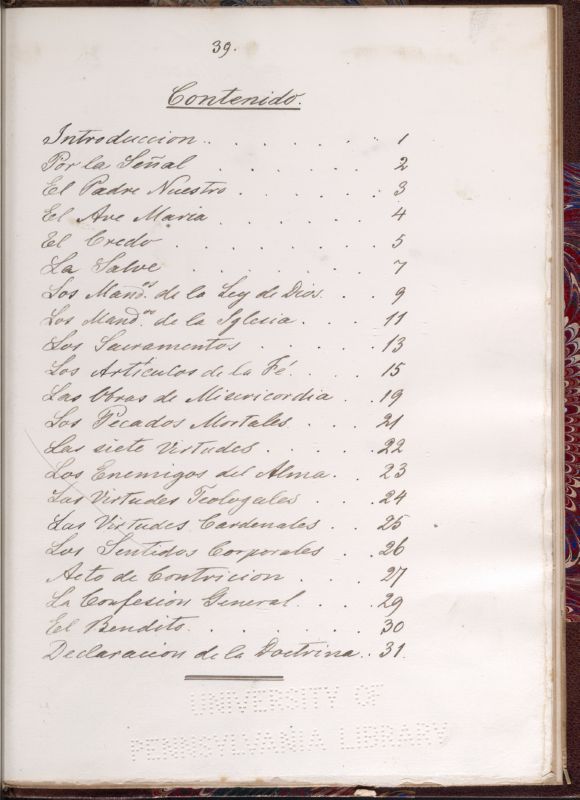 39.
Contenido.
Introduccion . . . . . . . . 1
Por la Señal . . . . . . . 2
El Padre Nuestro . . . . . . 3
El Ave Maria . . . . . . . 4
El Credo . . . . . . . . 5
La Salve . . . . . . . 7
Los Mand.os de la Ley de Dios. . . 9
Los Mand.os de la Iglesia . . . 11
Los Sacramentos . . . . . 13
Los Artículos de la Fé . . . . 15
Las Obras de Misericordia . . 19
Los Pecados Mortales . . . . 21
Las siete Virtudes . . . . . 22
Los Enemigos del Alma . . . 23
Las Virtudes Teologales . . . 24
Las Virtudes Cardenales . . . 25
Los Sentidos Corporales . . . 26
Acto de Contricion . . . . 27
La Confesion General . . . . 29
El Bendito . . . . . . . 30
Declaracion de la Doctrina . . 31.
UNIVERSITY OF
PENNSYLVANIA LIBRARY